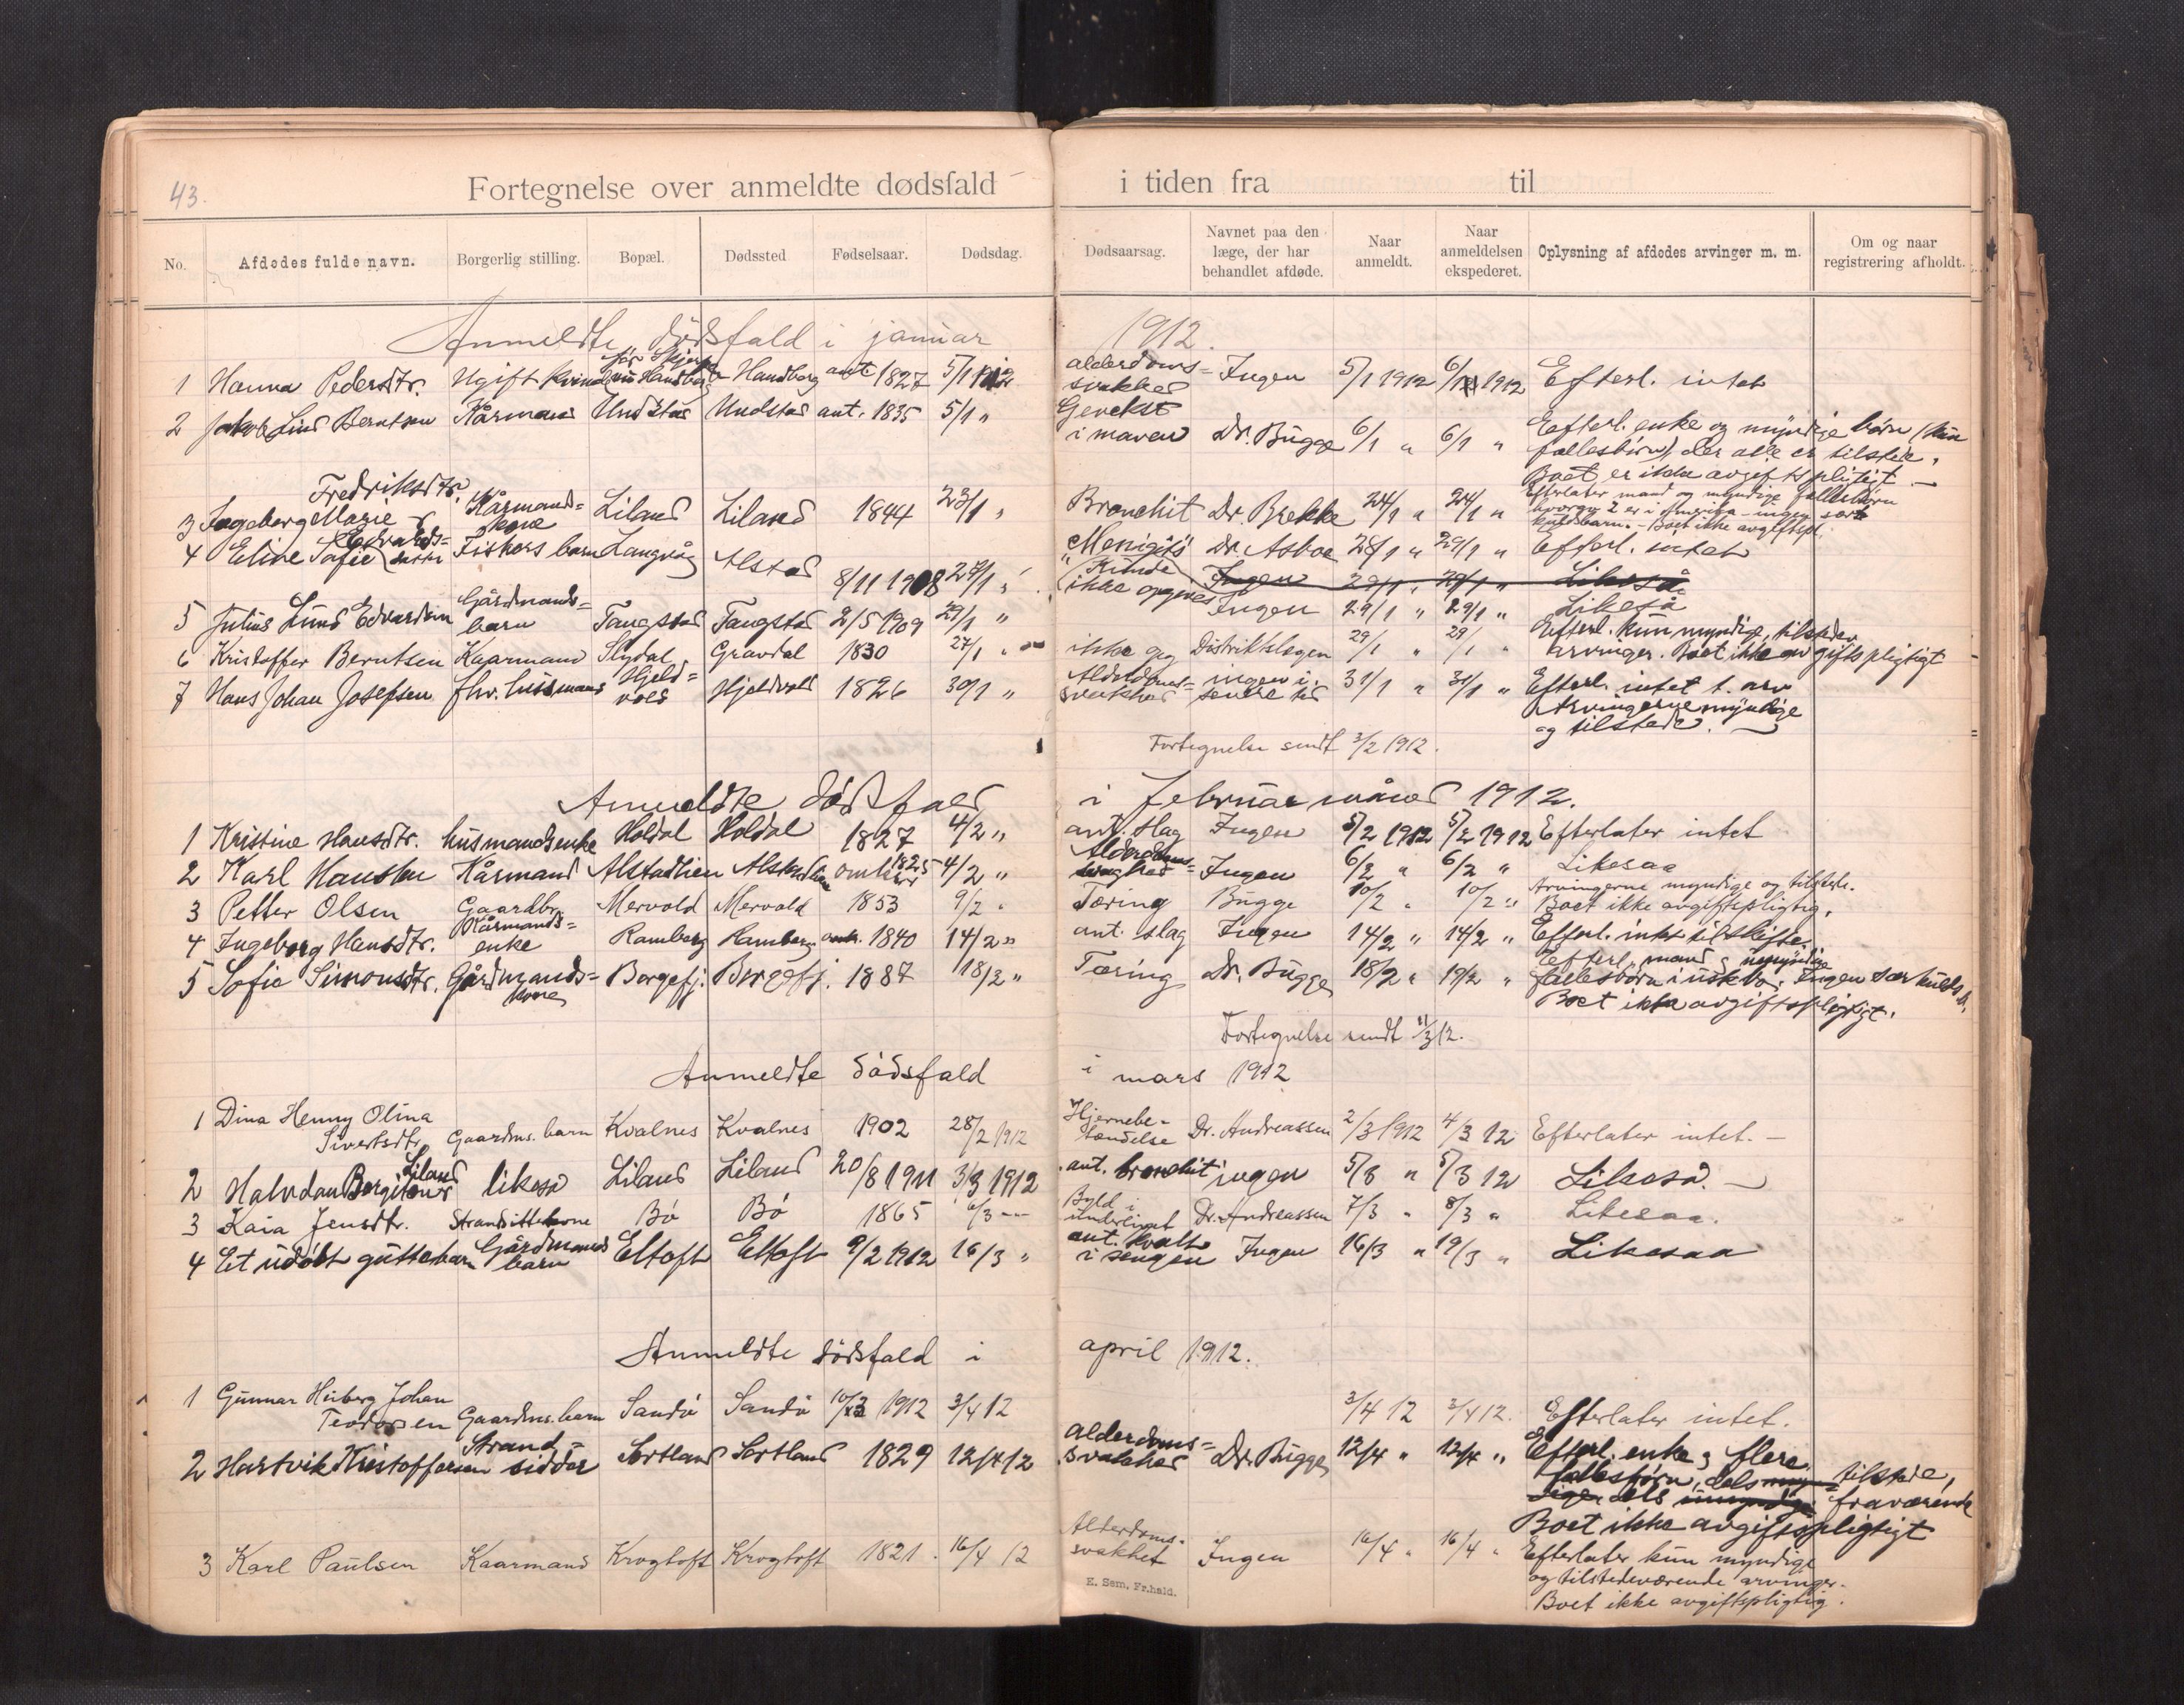 43.
Fortegnelse over anmeldte dødsfald i tiden fra til
No. Afdødes fulde navn. Borgerlig stilling. Bopæl. Dødssted Fødselsaar. Dødsdag. Dødsaarsag. Navnet paa den læge, der har behandlet afdøde. Naar anmeldt. Naar anmeldelsen ekspederet. Oplysning af afdødes arvinger m. m. Om og naar registrering afholdt.
Anmeldte dødsfald i januar 1912.
1 Hanna Pedersdtr. Ugift kvinde Handberg Handberg ant 1827 5/1 1912 alderdoms= svakhed Ingen 5/1 1912 6/1 1912 Efterl. intet
2 Jakob Lind Berntsen Kårmand Undstad Undstad ant. 1835 5/1 " Gevekst i maven Dr. Bugge 6/1 " 6/1 " Efterl. enke og myndige børn (kun
fællesbørn), der alle er tilstede.
Boet er ikke avgiftspligtigt —
3 Ingeborg Marie Fredriksdtr. Kårmands= kone Liland Liland 1844 23/1 " Bronchit Dr. Brekke 24/1 " 24/1 " Efterlater mand og myndige fællesbørn
hvorav 2 er i Amerika - ingen sær=
kuldsbarn. - Boet ikke avgiftspl.
4 Eline Sofie Edvards= datter Fiskers barn Langvåg Alstad 8/11 1908 27/1 " Menigits Dr. Asboe 28/1 " 29/1 " Efterl. intet
Ingen 29/1 " 29/1 " Likeså
5 Julius Lund Edvardsen Gårdmands= barn Tangstad Tangstad 2/5 1909 29/1 " ikke opgived Ingen 29/1 " 29/1 " Likeså
6 Kristoffer Berntsen Kaarmand Slydal Gravdal 1830 27/1 " ikke og Distriktslægen 29/1 " 29/1 " Efterl. kun myndige, tilstedev
arvinger. Boet ikke avgiftspligtigt
7 Hans Johan Josefsen fhv. husmand Hjeld= vold Hjeldvold 1826 30/1 " Alderdoms= svakhed ingen i senere tid 31/1 " 31/1 " Efterl. intet t. arv
Arvingerne myndige
og tilstede.
Fortegnelse sendt 3/2 1912.
Anmeldte dødsfald i februar måned 1912.
1 Kristine Hansdtr. husmandsenke Holdal Holdal 1827 4/2 " ant. slag Ingen 5/2 1912 5/2 1912 Efterlater intet
2 Karl Hansen Kårmand Alstadlien Alstadlien omkr 1825 4/2 " Alderdoms= svaghed Ingen 6/2 " 6/2 " Likesaa
3 Petter Olsen Gaardbr. Mervold Mervold 1853 9/2 " Tæring Bugge 10/2 " 10/2 " Arvingerne myndige og tilstede.
Boet ikke avgiftspligtig.
4 Ingeborg Hansdtr. Kårmands= enke Ramberg Ramberg omkr. 1840 14/2 " ant. slag Ingen 14/2 " 14/2 " Efterl. intet til skifte.
5 Sofie Simonsdtr. Gårdmands= kone Borgefj. Borgefj. 1887 18/2 " Tæring Dr. Bugge 18/2 " 19/2 " Efterl. mand & umyndige
fællesbørn i uskb. Ingen særkulds b.
Boet ikke avgiftspligtigt.
Fortegnelse sendt 11/3 12.
Anmeldte dødsfald i mars 1912
1 Dina Henny Olina Sivertsdtr. Gaardms. barn Kvalnes Kvalnes 1902 28/2 1912 Hjernebe- tændelse Dr. Andreassen 2/3 1912 4/3 12 Efterlater intet. —
2 Halvdan Bergiton Liland likeså Liland Liland 20/8 1911 3/3 1912 ant. bronchit ingen 5/3 " 5/3 12 Likeså. —
3 Kaia Jensdtr. Strandsitterkone Bø Bø 1865 6/3 -- Byld i underlivet Dr. Andreassen 7/3 " 8/3 " Likesaa.
4 Et udøbt guttebarn Gårdmands barn Eltoft Eltoft 9/2 1912 16/3 " ant. kvalt i sengen Ingen 16/3 " 19/3 " Likesaa
Anmeldte dødsfald i april 1912.
1 Gunnar Huberg Johan Teodorsen Gaardms. barn Sandø Sandø 10/3 1912 3/4 12 3/4 12 3/4 12. Efterlater intet.
2 Hartvik Kristoffersen Strand= sidder Sortland Sortland 1829 12/4 12 alderdoms= svakhed Dr. Bugge 12/4 " 12/4 " Efterl. enke & flere
fællesbørn, dels tilstede,
dels fraværende
Boet ikke avgiftspligtigt
3 Karl Paulsen Kaarmand Krogtoft Krogtoft 1821. 16/4 12 Alderdoms- svakhet Ingen 16/4 " 16/4 " Efterlater kun myndige
og tilstedeværende arvinger.
Boet ikke avgiftspligtig.
E. Sem, Fr.hald.